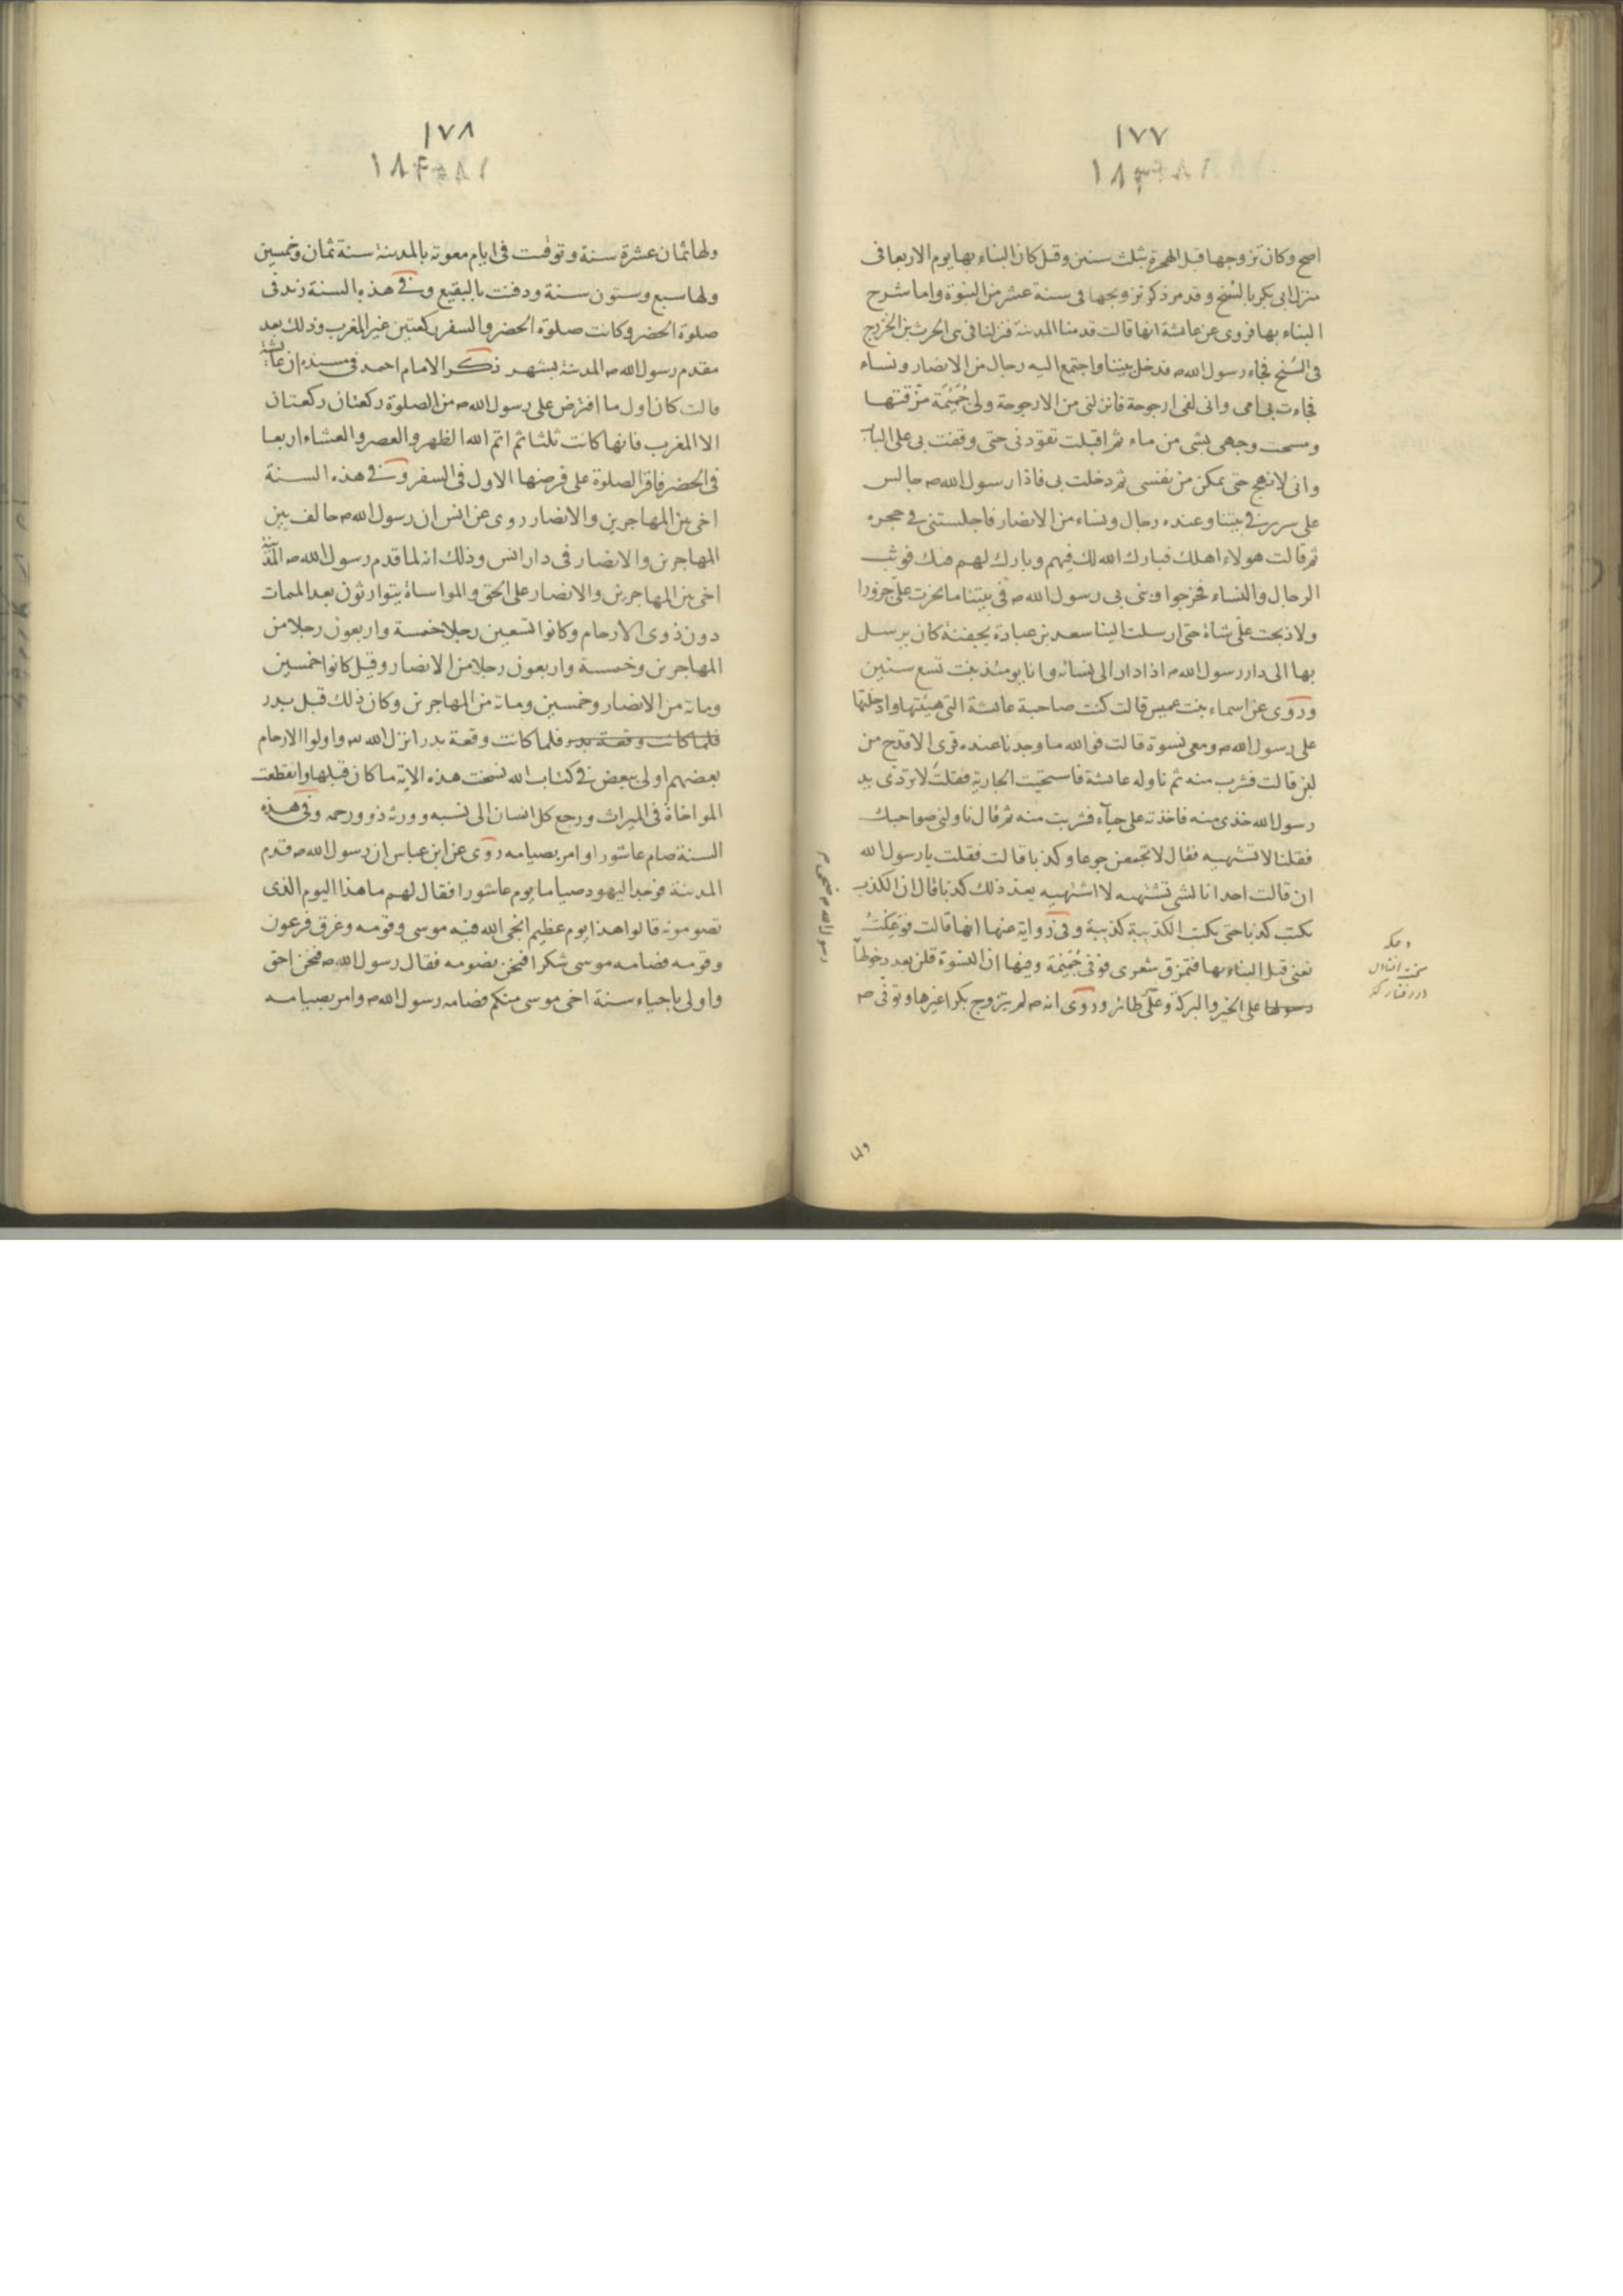 ١٧٧
اصح وكان تزوجها قبل الهجرة بثلث سنين وقيل كان البناء بها يوم الاربعا فى
منزل ابى بكر بالسُنح وقد مر ذكر تزويجها فى سنة عشر من النبوة واما شرح
البناء بها فروى عن عائشة انها قالت قدمنا المدينة فنزلنا فى بنى الحرث بن الخزرج
فى السُنح فجاء رسول الله ص فدخل بيتنا واجتمع اليه رجال من الانصار ونساء
فجاءت بى امى وانى لفى ارجوحة فانزلنى من الارجوحة ولى جُمَيْمَة مزّقتها
ومسحت وجهى بشى من ماء ثم اقبلت تقودنى حتى وقفت بى على الباب
وانى لانهج حتى يمكن من نفسى ثم دخلت بى فاذا رسول الله ص جالس
على سرير فى بيتنا وعنده رجال ونساء من الانصار فاجلستنى فى حجره
ثم قالت هولاء اهلك فبارك الله لك فيهم وبارك لهم فيك فوثب
الرجال والنساء فخرجوا وبنى بى رسول الله ص فى بيتنا ما نحرت علىّ جزورا
ولا ذبحت علىّ شاة حتى ارسلت الينا سعد بن عبادة بجفنة كان يرسل
بها الى دار رسول الله ص اذا دار الى نسائه وانا يومئذ بنت تسع سنين
وروى عن اسماء بنت عميس قالت كنت صاحبة عائشة التى هيئتها وادخلتها
على رسول الله ص ومعى نسوة قالت فوالله ما وجدنا عنده قرى الا قدح من
لبن قالت فشرب منه ثم ناوله عائشة فاستحيت الجارية فقلت لا تردى يد
رسول الله خذى منه فاخذته على حيآء فشربت منه ثم قال ناولنى صواحبك
فقلنا لا نشتهيه فقال لا تجمعن جوعا وكذبا قالت فقلت يا رسول الله
ان قالت احدانا لشى تشتهيه لا اشتهيه يعد ذلك كذبا قال ان الكذب
يكتب كذبا حتى يكتب الكذيبة كذيبة وفى رواية عنها انها قالت فوَعِكْتُ
تعنى قبل البناء بها فتمزق شعرى فوفى جُمَيْمَة وفيها ان النسوة قلن بعد دخولها
على الخير والبركة وعلى طائر وروى انه ص لم يتزوج بكرا غيرها وتوفى ص
وعك
ولها
١٧٨
ولها ثمان عشرة سنة وتوفيت فى ايام معوية بالمدينة سنة ثمان وخمسين
ولها سبع وستون سنة ودفنت بالبقيع وفى هذه السنة زيد فى
صلوة الحضر وكانت صلوة الحضر والسفر ركعتين غير المغرب وذلك بعد
مقدم رسول الله ص المدينة بشهر ذكر الامام احمد فى مسنده ان عائشة
قالت كان اول ما افترض على رسول الله ص من الصلوة ركعتان ركعتان
الا المغرب فانها كانت ثلثا ثم اتم الله الظهر والعصر والعشاء اربعا
فى الحضر فاقر الصلوة على فرضها الاول فى السفر وفى هذه السنة
اخى بين المهاجرين والانصار روى عن انس ان رسول الله ص حالف بين
المهاجرين والانصار فى دار انس وذلك انه لما قدم رسول الله ص المدينة
اخى بين المهاجرين والانصار على الحق والمواساة يتوارثون بعد الممات
دون ذوى الارحام وكانوا تسعين رجلا خمسة واربعون رجلا من
المهاجرين وخمسة واربعون رجلا من الانصار وقيل كانوا خمسين
ومائة من الانصار وخمسين ومائة من المهاجرين وكان ذلك قبل بدر
فلما كانت وقعة بدر فلما كانت وقعة بدر انزل الله واولوا الارحام
بعضهم اولى ببعض فى كتاب الله نسخت هذه الاية ما كان قبلها وانقطعت
المواخاة فى الميراث ورجع كل انسان الى نسبه وورثه ذوو رحمه وفى هذه
السنة صام عاشورا وامر بصيامه روى عن ابن عباس ان رسول الله ص قدم
المدينة فوجد اليهود صياما يوم عاشورا فقال لهم ما هذا اليوم الذى
تصومونه قالوا هذا يوم عظيم انجى الله فيه موسى وقومه وغرق فرعون
وقومه فصامه موسى شكرا فنحن نصومه فقال رسول الله ص فنحن احق
واولى باحياء سنة اخى موسى منكم فصامه رسول الله ص وامر بصيامه